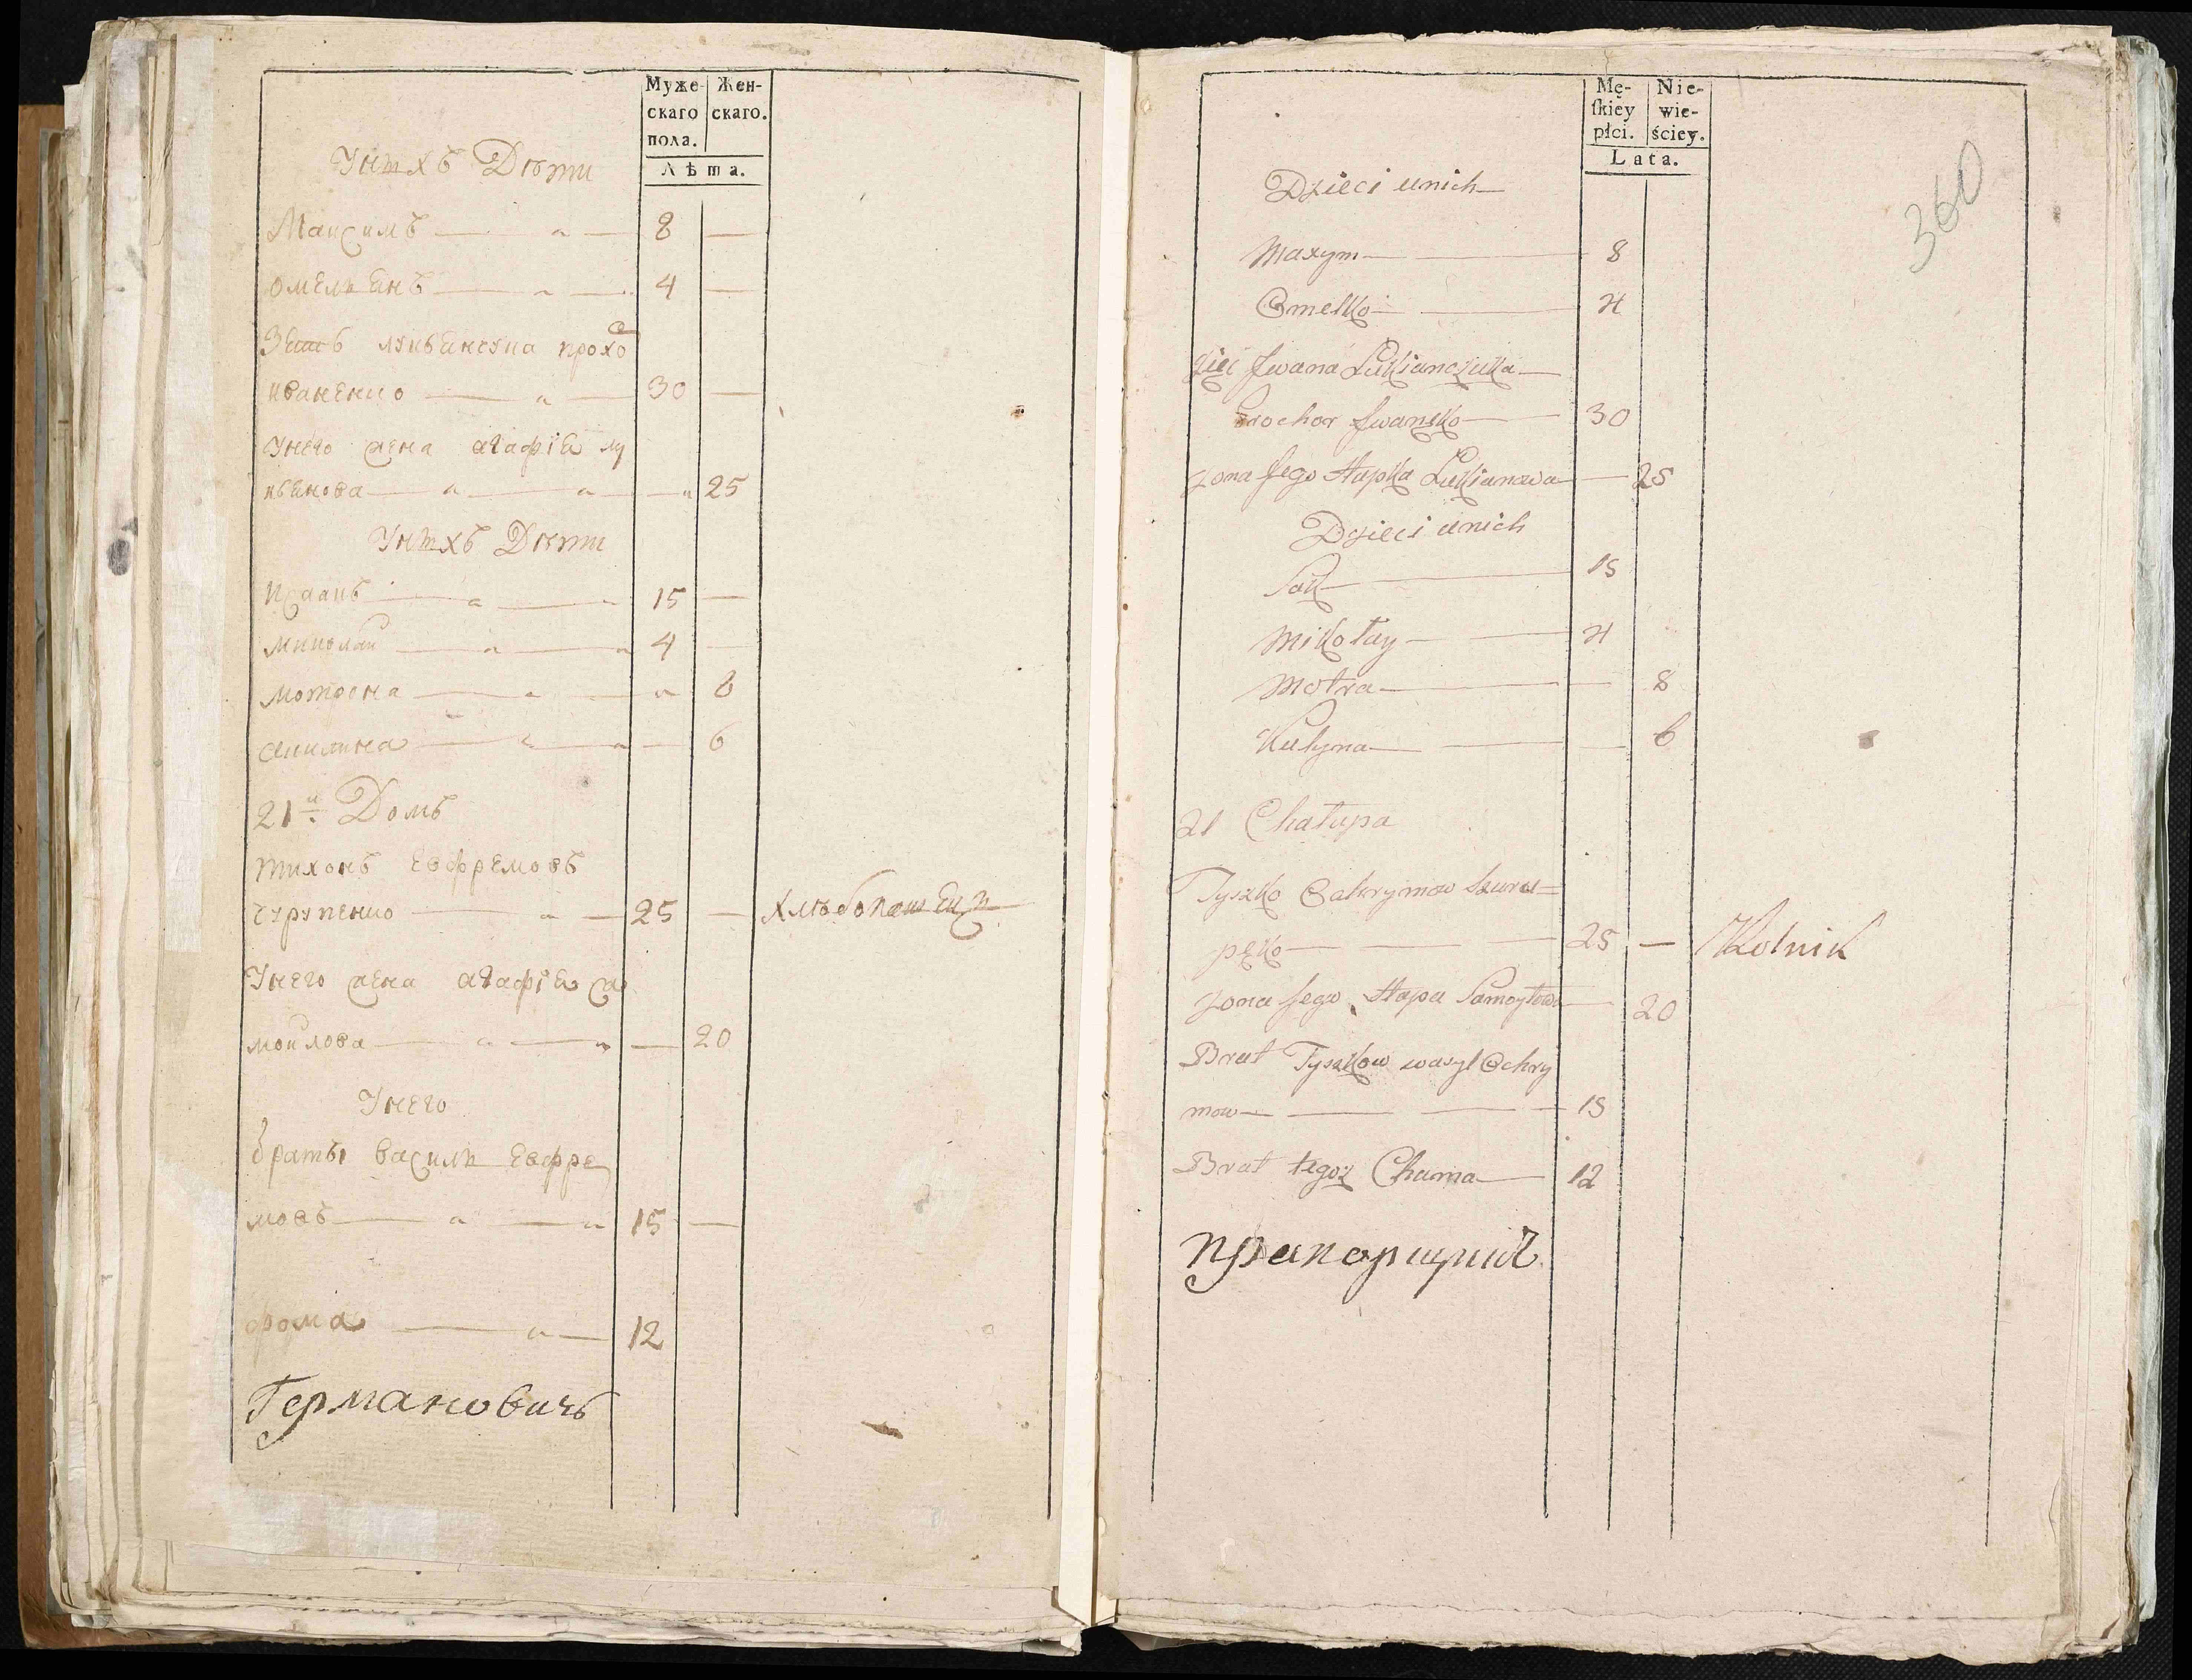 Муже- Жен-
скаго скаго.
пола.
Лѣта.
Унихъ Дѣти
Максимъ — " — 8 —
омельянъ — " — 4 —
Зять лукьянсука прохо
иваненко — " — 30 —
Унего жена агафія лу
кьянова — " — " — " 25
Унихъ Дѣти
Исаакъ — " — 15 —
миколай — " — " 4 —
мотрона — " — " 8
акилина — " — " — 6
21й Домъ
тихонъ Евфремовъ
сурупенко — " — 25 — хлѣбопашецъ
Унего жена агафія са
мойлова — " — " — 20
Унего
братья василй Евфре
мовъ — " — " 15 —
фома — " — 12
Германовичъ
Mę- Nie-
skiey wie-
płci. ściey.
Lata.
360
Dzieci unich
Maxym — — 8
Omelko — — 4
Zięć Jwana Lukianczuka —
Prochor Jwanęko — 30
Zona Jego Hapka Lukianowa — 25
Dzieci unich
Sak — 15
Mikołay — — 4
Motra — — 8
Kulyna — — — 6
21 Chałupa
Tyszko Oahrymow Szuru=
pęko — — — 25 — Rolnik
Zona Jego Hapa Samoyłowa — 20
Brat Tyszkow wasyl Ochry
mow — — — 15
Brat tegoż Chama — 12
прапорщикъ